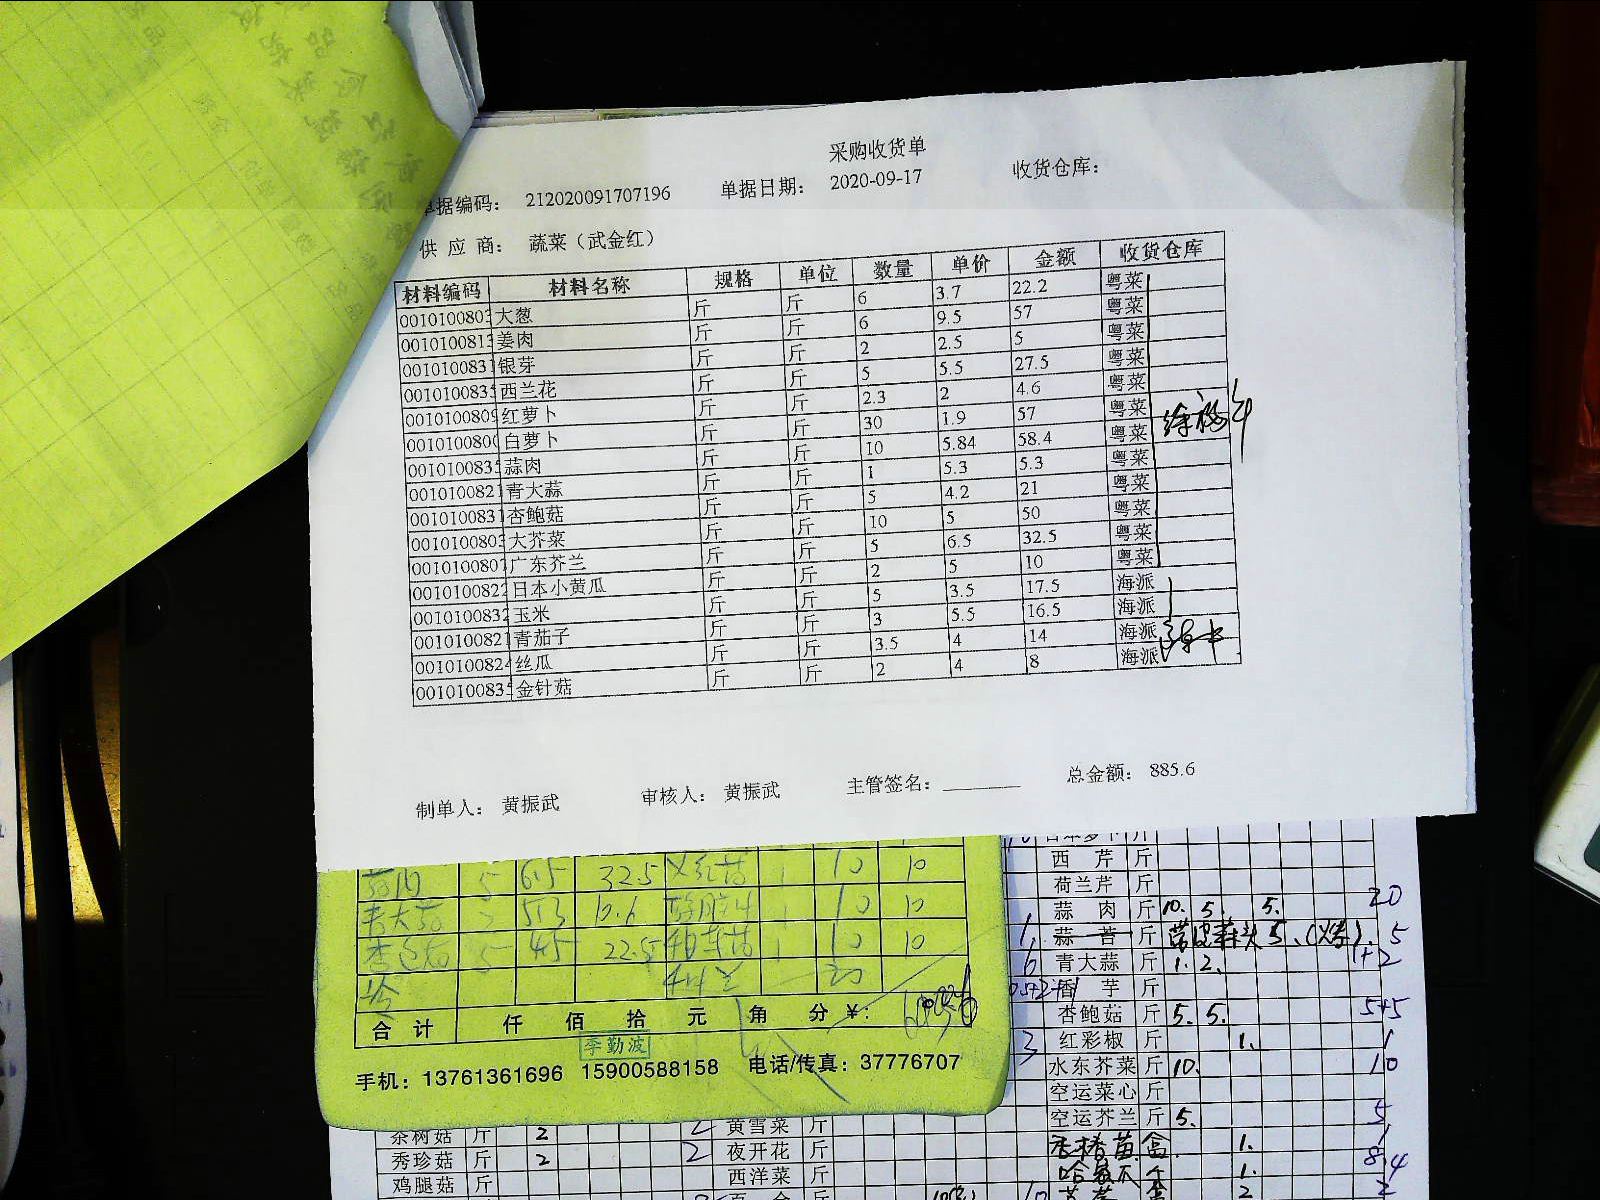 采购收货单
单据编码: 212020091707196 单据日期: 2020-09-17 收货仓库:
供应商: 蔬菜(武金红)
材料编码 材料名称 规格 单位 数量 单价 金额 收货仓库
001010080 大葱 斤 斤 6 3.7 22.2 粤菜
001010081 姜肉 斤 斤 6 9.5 57 粤菜
001010083 银芽 斤 斤 2 2.5 5 粤菜
001010083 西兰花 斤 斤 5 5.5 27.5 粤菜
001010080 红萝卜 斤 斤 2.3 2 4.6 粤菜
001010080 白萝卜 斤 斤 30 1.9 57 粤菜
001010083 蒜肉 斤 斤 10 5.84 58.4 粤菜
001010082 青大蒜 斤 斤 1 5.3 5.3 粤菜
001010083 杏鲍菇 斤 斤 5 4.2 21 粤菜
001010080 大芥菜 斤 斤 10 5 50 粤菜
001010080 广东芥兰 斤 斤 5 6.5 32.5 粤菜
001010082 日本小黄瓜 斤 斤 2 5 10 粤菜
001010083 玉米 斤 斤 5 3.5 17.5 海派
001010082 青茄子 斤 斤 3 5.5 16.5 海派
001010082 丝瓜 斤 斤 3.5 4 14 海派
001010083 金针菇 斤 斤 2 4 8 海派
制单人: 黄振武 审核人: 黄振武 主管签名: 总金额: 885.6
5 6.5 32.5 1 10 10
青大蒜 2 5.3 10.6 1 10 10
5 4.5 22.5 1 10 10
合计 仟 佰 拾 元 角 分 ¥:
李勤波
手机: 13761361696 15900588158 电话/传真: 37776707
西芹 斤
荷兰芹 斤
蒜肉 斤 10. 5. 5. 20
蒜苔 斤 5
青大蒜 斤 1. 2. 1+2
香芋 斤
杏鲍菇 斤 5. 5. 5+5
3 红彩椒 斤 1. 1
水东芥菜 斤 10. 10
空运菜心 斤
空运芥兰 斤 5. 5
盒 1.
茶树菇 斤 2 2 黄雪菜 斤
秀珍菇 斤 2 2 夜开花 斤
鸡腿菇 斤 西洋菜 斤